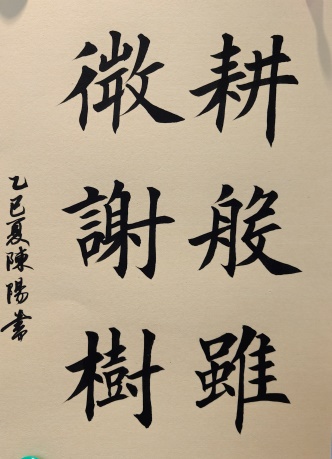 耕般雖
微謝樹
乙巳夏陳陽書